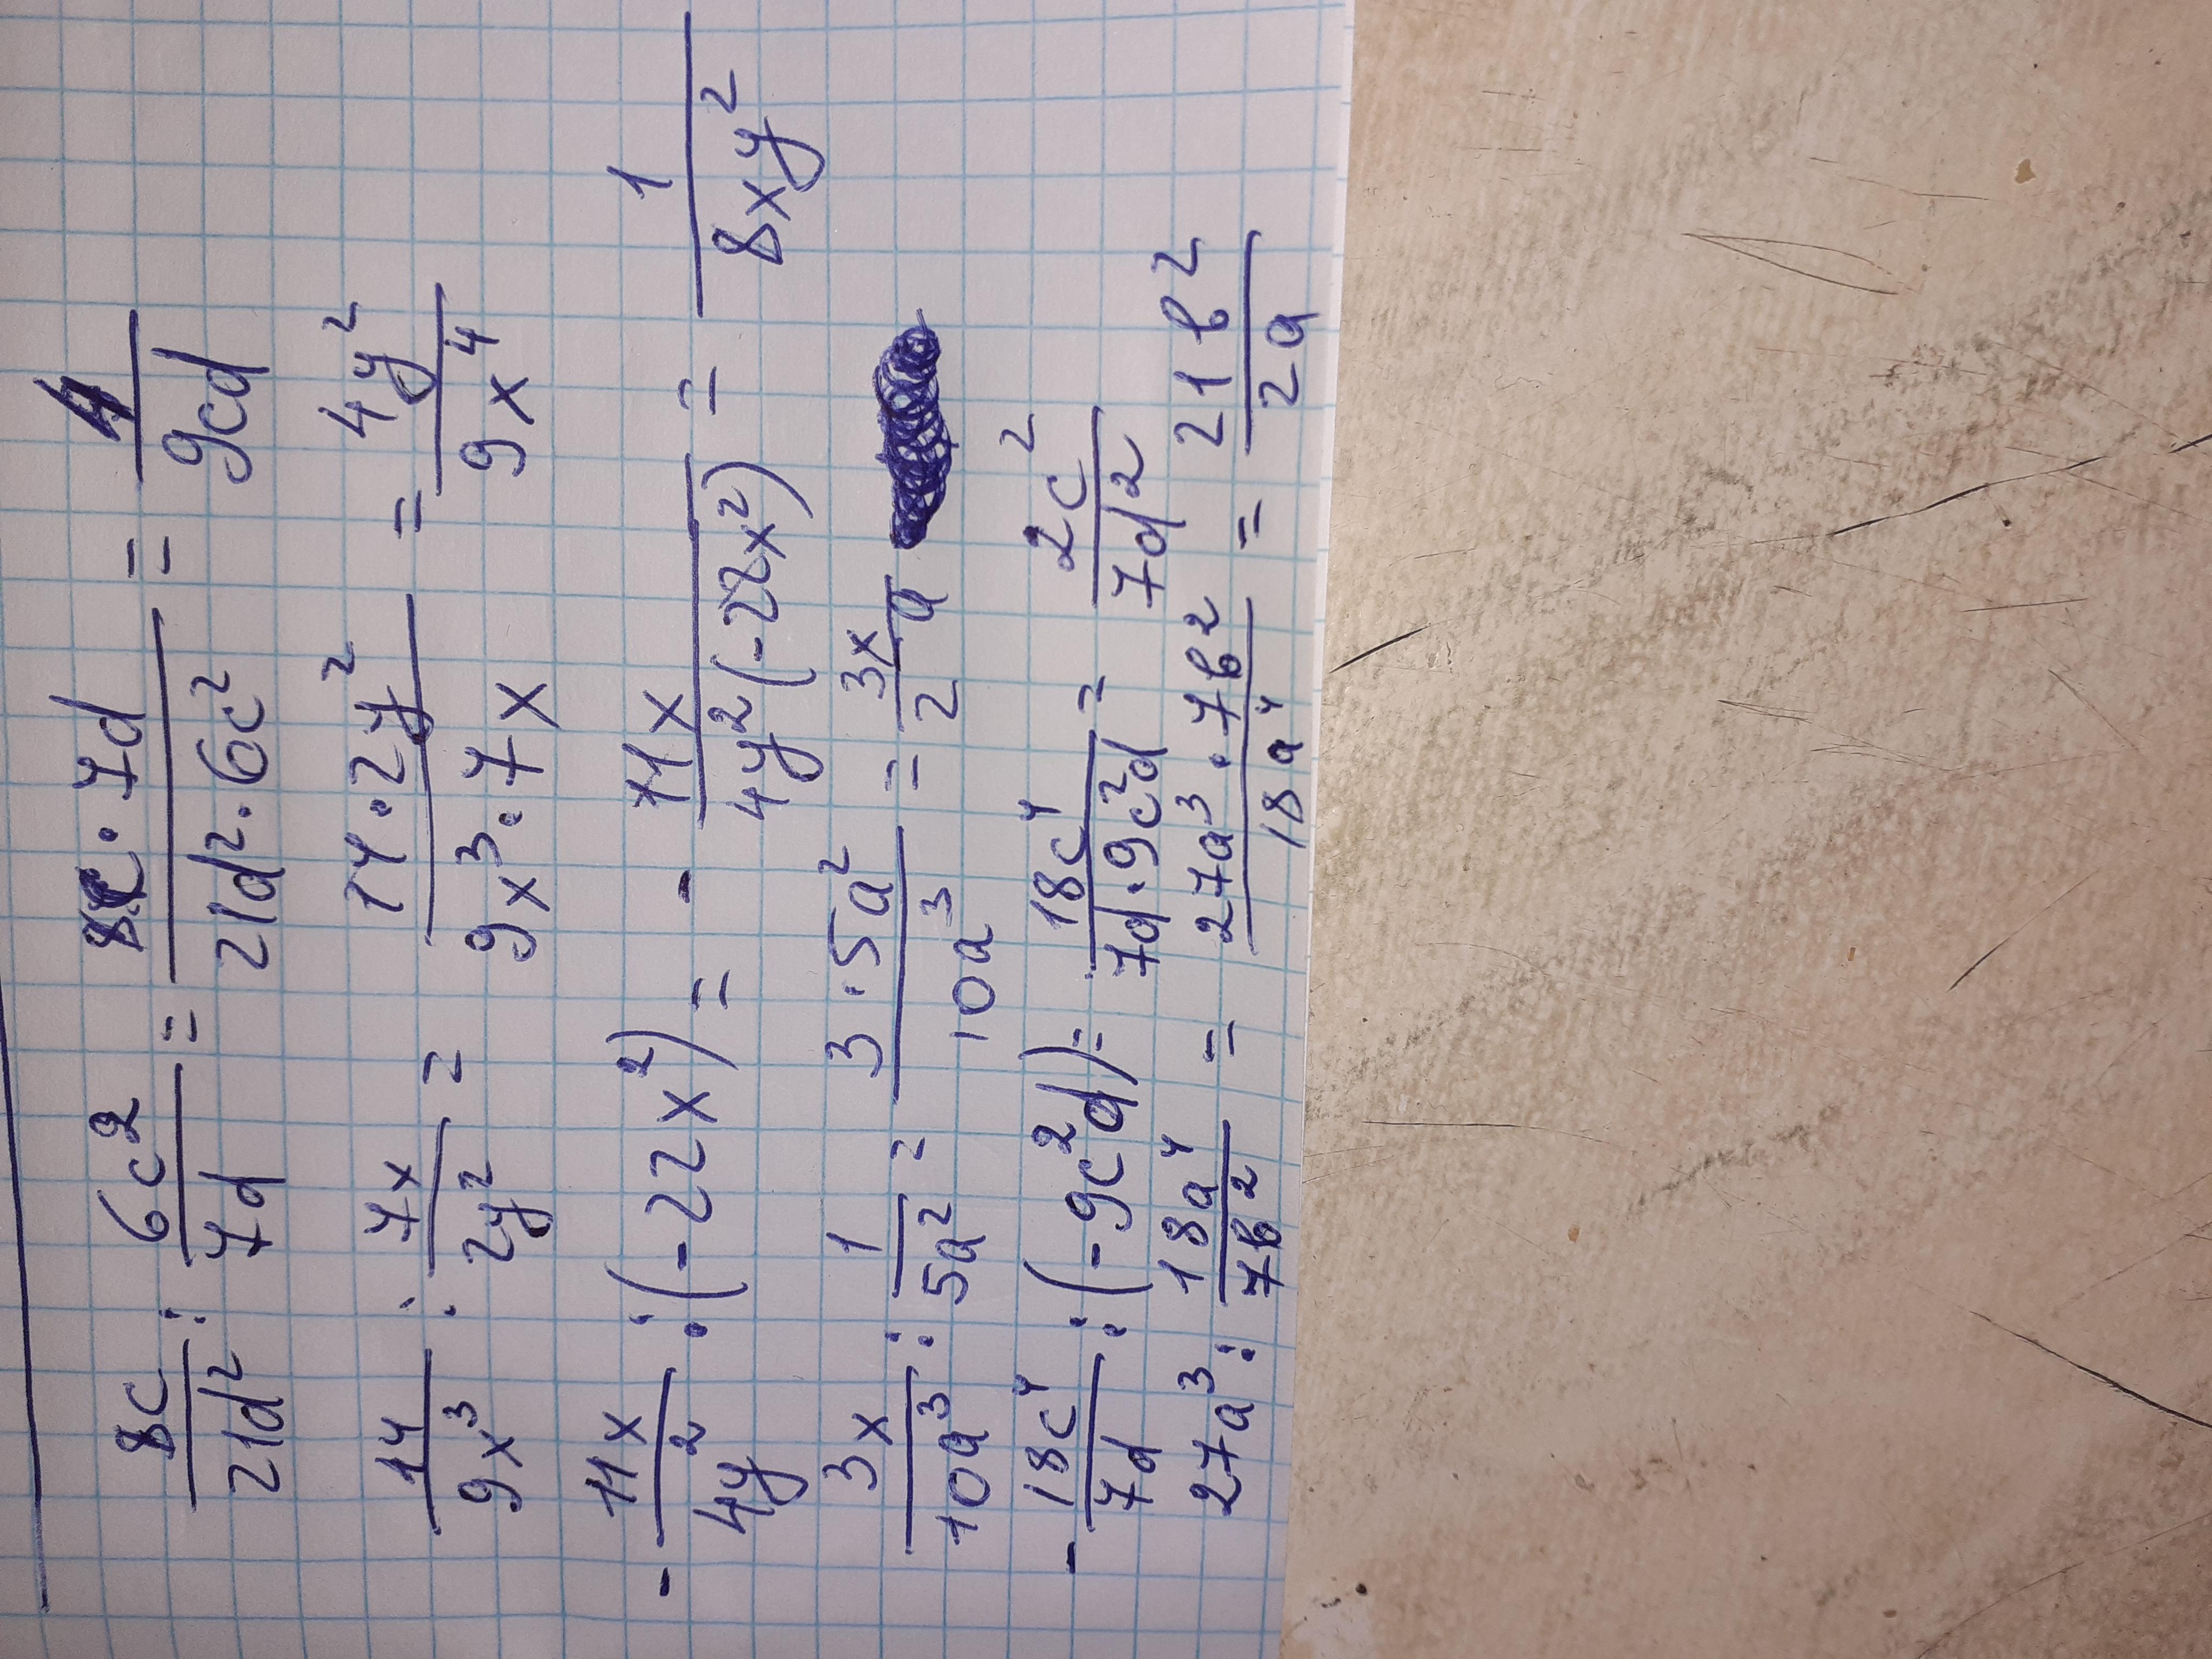 8c/21d² : 6c²/7d = 8c·7d/21d²·6c² = 4/9cd
14/9x³ : 7x/2y² = 14·2y²/9x³·7x = 4y²/9x⁴
-11x/4y² : (-22x²) = -11x/4y²(-22x²) = 1/8xy²
3x/10a³ : 1/5a² = 3·5a²/10a³ = 3x/2a
-18c⁴/7d : (-9c²d) = 18c⁴/7d·9c²d = 2c²/7d²
27a³ : 18a⁴/7b² = 27a³·7b²/18a⁴ = 21b²/2a